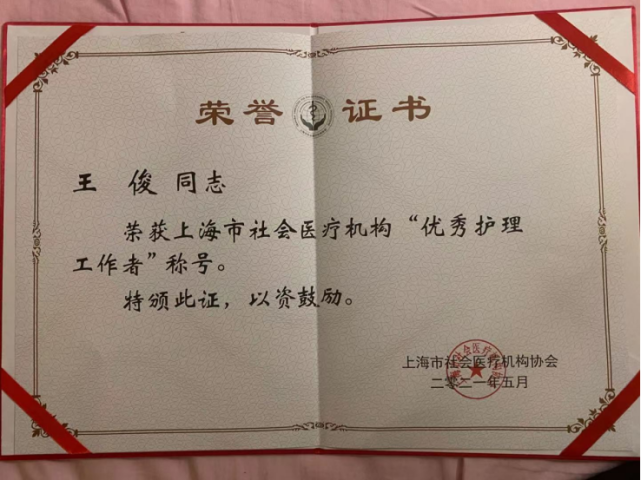 荣誉证书
王 俊 同志
荣获上海市社会医疗机构“优秀护理
工作者”称号。
特颁此证，以资鼓励。
上海市社会医疗机构协会
二零二一年五月